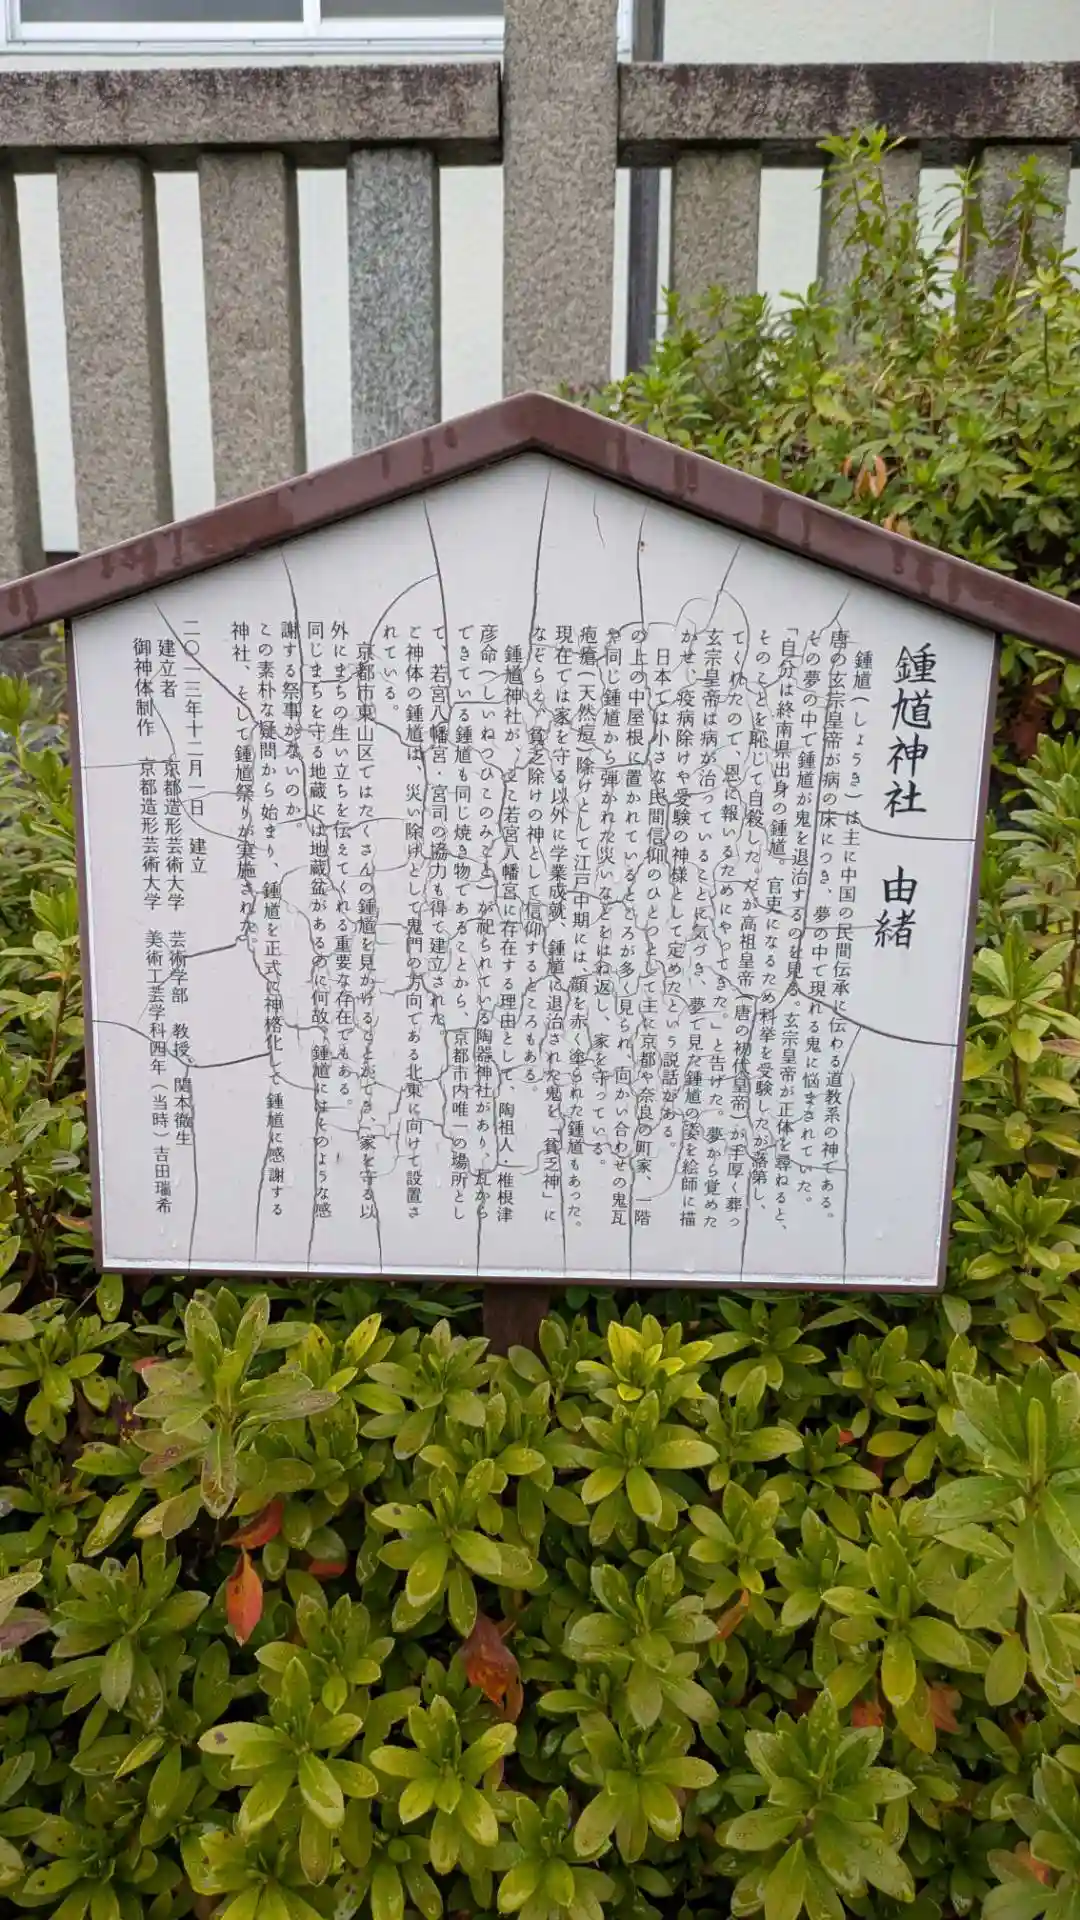 鍾馗神社　由緒
鍾馗（しょうき）は主に中国の民間伝承に伝わる道教系の神である。
唐の玄宗皇帝が病の床につき、夢の中で現れる鬼に悩まされていた。
その夢の中で鍾馗が鬼を退治するのを見る。玄宗皇帝が正体を尋ねると、
「自分は終南県出身の鍾馗。官吏になるため科挙を受験したが落第し、
そのことを恥じて自殺した。だが高祖皇帝（唐の初代皇帝）が手厚く葬っ
てくれたので、恩に報いるためにやってきた。」と告げた。夢から覚めた
玄宗皇帝は病が治っていることに気づき、夢で見た鍾馗の姿を絵師に描
かせ、疫病除けや受験の神様として定めたという説話がある。
日本では小さな民間信仰のひとつとして主に京都や奈良の町家、一階
の上の中屋根に置かれているところが多く見られ、向かい合わせの鬼瓦
や同じ鍾馗から弾かれた災いなどをはね返し、家を守っている。
疱瘡（天然痘）除けとして江戸中期には、顔を赤く塗られた鍾馗もあった。
現在では家を守る以外に学業成就、鍾馗に退治された鬼を「貧乏神」に
なぞらえ、貧乏除けの神として信仰するところもある。
鍾馗神社が、ここ若宮八幡宮に存在する理由として、陶祖人・椎根津
彦命（しいねつひこのみこと）が祀られている陶器神社があり、瓦から
できている鍾馗も同じ焼き物であることから、京都市内唯一の場所とし
て、若宮八幡宮・宮司の協力も得て建立された。
ご神体の鍾馗は、災い除けとして鬼門の方向である北東に向けて設置さ
れている。
京都市東山区ではたくさんの鍾馗を見かけることができ、家を守る以
外にまちの生い立ちを伝えてくれる重要な存在でもある。
同じまちを守る地蔵には地蔵盆があるのに何故、鍾馗にはそのような感
謝する祭事がないのか。
この素朴な疑問から始まり、鍾馗を正式に神格化して鍾馗に感謝する
神社、そして鍾馗祭りが実施された。
二〇一三年十二月一日　建立
建立者　京都造形芸術大学　芸術学部　教授　関本徹生
御神体制作　京都造形芸術大学　美術工芸学科四年（当時）吉田瑞希